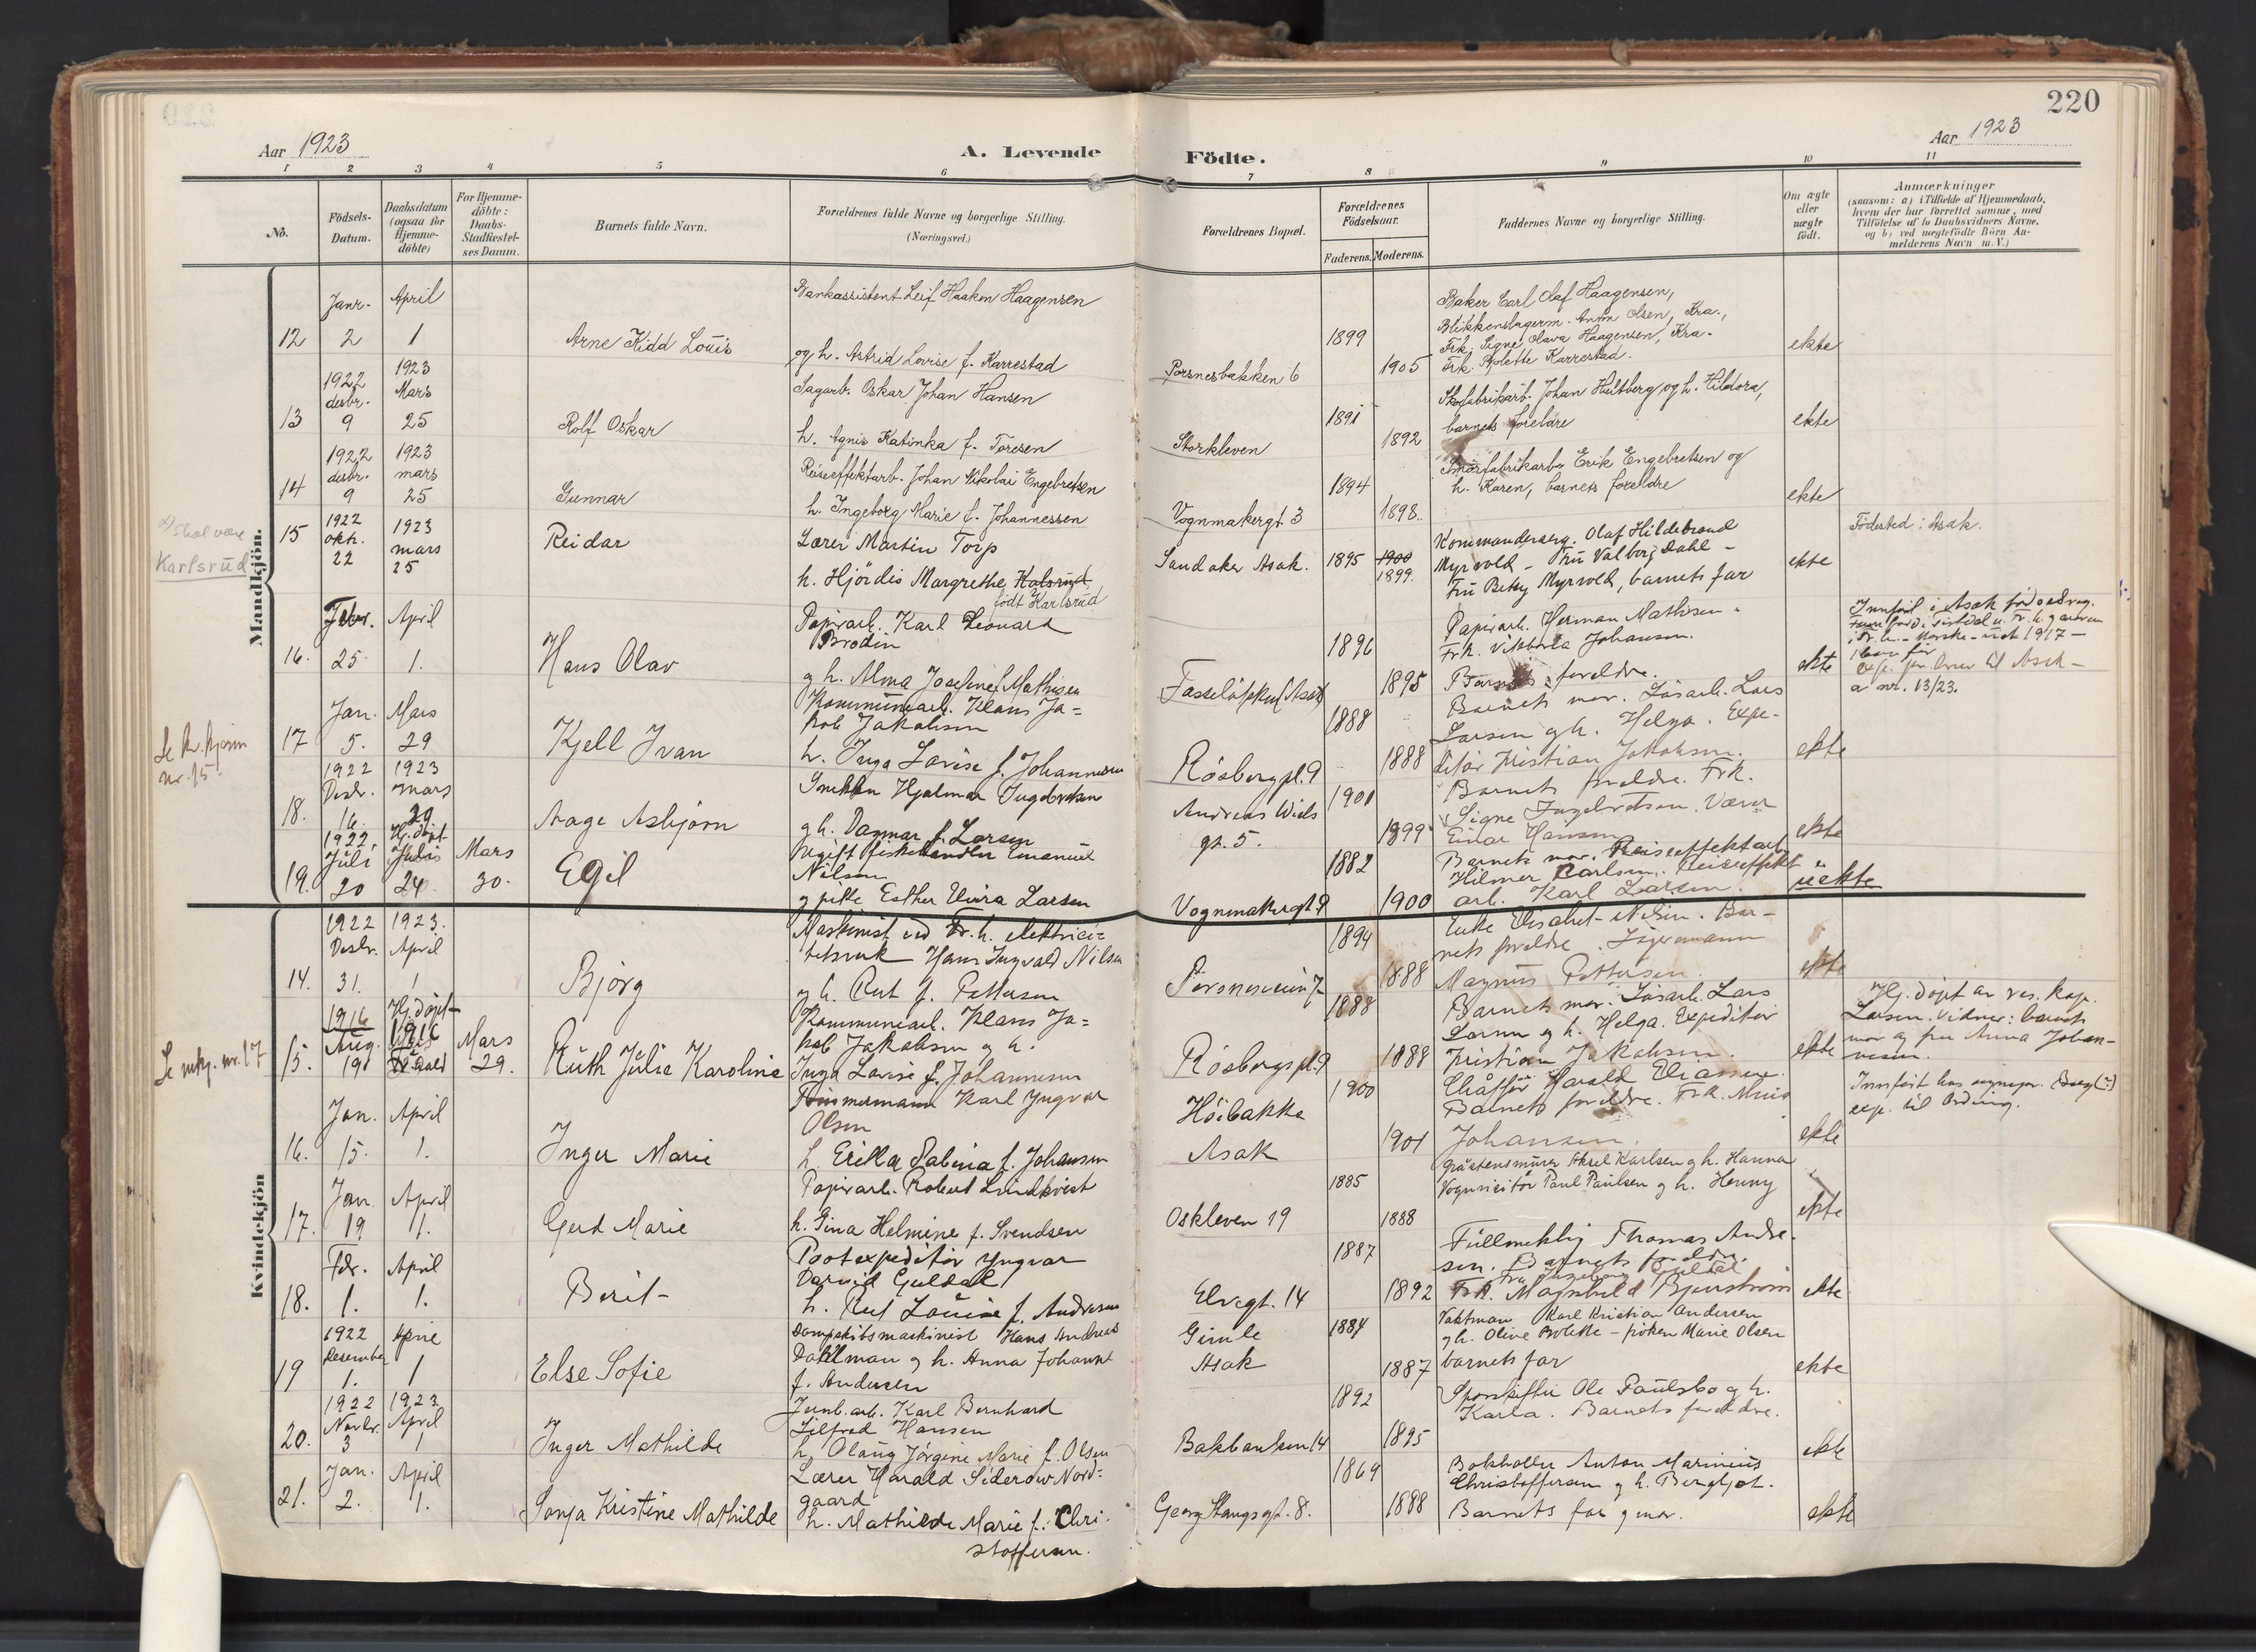 220
Aar 1923
A. Levende
Födte.
Aar 1923
1 2 3 4 5 6 7 8 9 10 11
No.
Födsels-
Datum.
Daabsdatum
(ogsaa for
Hjemme-
döbte)
For Hjemme-
döbte:
Daabs-
Stadfæstel-
ses Datum.
Barnets fulde Navn.
Forældrenes fulde Navne og borgerlige Stilling.
(Næringsvei.)
Forældrenes Bopæl.
Forældrenes
Födselsaar.
Faderens. Moderens.
Faddernes Navne og borgerlige Stilling.
Om ægte
eller
uægte
födt.
Anmærkninger
(saasom: a) i Tilfælde af Hjemmedaab,
hvem der har forrettet samme, med
Tilföielse af to Daabsvidners Navne,
og b) ved uægtefödte Börn An-
melderens Navn m. V.)
Mandkjön.
12
Janr.
2
April
1
Arne Kidd Louis
Bankassistent Leif Haakon Haagensen
og h. Astrid Lovise f. Karrestad
Porsnesbakken 6
1899
1905
Baker Carl Olaf Haagensen,
Blikkenslagerm. Anton Olsen, Kra.,
Frk. Signe Olava Haagensen, Kra.
Frk. Bolette Karrestad.
ekte
13
1922
desbr.
9
1923
Mars
25
Rolf Oskar
Sagarb. Oskar Johan Hansen
h. Agnis Katinka f. Toresen
Storkleven
1891
1892
Skofabrikarb. Johan Hultberg og h. Hildora,
barnets foreldre
ekte
14
1922
desbr.
9
1923
mars
25
Gunnar
Reiseeffektarb. Johan Nikolai Engebretsen
h. Ingeborg Marie f. Johannessen
Vognmakergt 3
1894
1898
Smörfabrikarb. Erik Engebretsen og
h. Karen, barnets foreldre
ekte
x) Skal være
Karlsrud
15
1922
okt.
22
1923
mars
25
Reidar
Lærer Martin Torp
h. Hjördis Margrethe Kalsrud
födt Karlsrud
Sandaker Asak.
1895
1900
1899
Kommandersrg. Olaf Hildebrand
Myrvold - Fru Valborg Dahl -
Fru Betsy Myrvold, barnets far
ekte
Födested: Asak.
16.
Febr.
25
April
1.
Hans Olav
Papirarb. Karl Leonard
Brodin
g h. Alma Josefine f. Mathisen
1896
1895
Papirarb. Herman Mathisen.
Frk. Viktoria Johansen.
Barnets foreldre.
ekte
a nr. 13/23.
Se kv. kjønn
nr. 15.
17
Jan.
5.
Mars
29
Kjell Ivan
Kommunearb. Klaus Ja=
kob Jakobsen
h. Inga Lovise f. Johannesen
Rösbergpl. 9
1888
1888
Barnets mor. Lösarb. Lars
Larsen g h. Helga. Expe-
ditör Kristian Jakobsen.
ekte
18.
1922
Desbr.
16.
1923
mars
29
Aage Asbjörn
Snekker Hjalmar Ingebretsen
g h. Dagmar f. Larsen
Andreas Wiels
gt. 5.
1901
1899
Barnets foreldre. Frk.
Signe Ingebretsen. Værer
Einar Hansen
ekte
19.
1922
Juli
20
Hj. döpt
Julis
24
Mars
30.
Egil
Ugift fiskehandler Emanuel
Nilsen
g pike Esther Elvira Larsen
Vognmakergt 9
1882
1900
Barnets mor. Reiseeffektarb.
Hilmer Carlsen. Reiseeffekt
arb. Karl Larsen.
uekte
Kvindekjön
14.
1922
Desbr.
31.
1923.
April
1
Bjørg
Maskinist ved Fr.h. elektrici=
tetsverk Hans Ingvald Nilsen
g h. Rut f. Pettersen
Porsnesveien 7
1894
1888
Enke Elisabet Nilsen. Bar-
nets foreldre. Jägermann
Magnus Pettersen
ekte
Se mkj. nr. 17
15.
1916
Aug.
19
Hj. döpt
1916
Mars
29.
Ruth Julie Karoline
Kommunearb. Klaus Ja=
kob Jakobsen g h.
Inga Lovise f. Johannesen
Rösbergspl. 9
1888
1888
Barnets mor. Lösarb. Lars
Larsen g h. Helga. Expeditör
Kristian Jakobsen.
ekte
Hj. döpt av res. kap.
Larsen. Vidner: barnets
mor og fru Anna Johan-
nesen.
16.
Jan.
15.
April
1.
Inger Marie
Tömmermann Karl Yngvar
Olsen
h. Erikka Sabina f. Johansen
Höibakke
Asak
1900
1901
Chaffør Harald Eliassen.
Barnets foreldre. Frk.
Johansen.
ekte
17.
Jan.
19
April
1.
Gerd Marie
Papirarb. Robert Lindkvist
h. Gina Helmine f. Svendsen
Oskleven 19
1885
1888
Gråstensmurer Aksel Karlsen g h. Hanna
Vognvisitör Paul Paulsen g h. Henny
ekte
18.
Febr.
1.
April
1.
Berit
Postexpeditör Yngvar
Darvid Guldal
h. Rut Louise f. Andresen
Elvegt. 14
1887
1892
Fullmektig Thomas Andre-
sen. Barnets foreldre.
Fru Ingeborg Guldal
Frk. Magnhild Bjerström
ekte
19
1922
Desember
1.
April
1
Else Sofie
Dampskibsmaskinist Hans Andreas
Dahlman g h. Anna Johanne
f. Andersen
Gimle
Asak
1884
1887
Vaktman Karl Kristian Andersen
g h. Oline Bolette - fröken Marie Olsen
barnets far
ekte
20.
1922
Novbr.
3
1923
April
1
Inger Mathilde
Jernb.arb. Karl Bernhard
Silfred Hansen
h. Olaug Jörgine Marie f. Olsen
Bakbanken 14
1892
1895
Sporskifter Ole Paulsbo g h.
Karla. Barnets foreldre.
ekte
21.
Jan.
2.
April
1.
Sonja Kristine Mathilde
Lærer Harald Siderow Nord=
gaard
h. Mathilde Marie f. Chri-
stoffersen.
Georg Stangs gt. 8.
1869
1888
Bokholder Anton Marinius
Christoffersen g h. Bergljot.
Barnets far g mor.
ekte